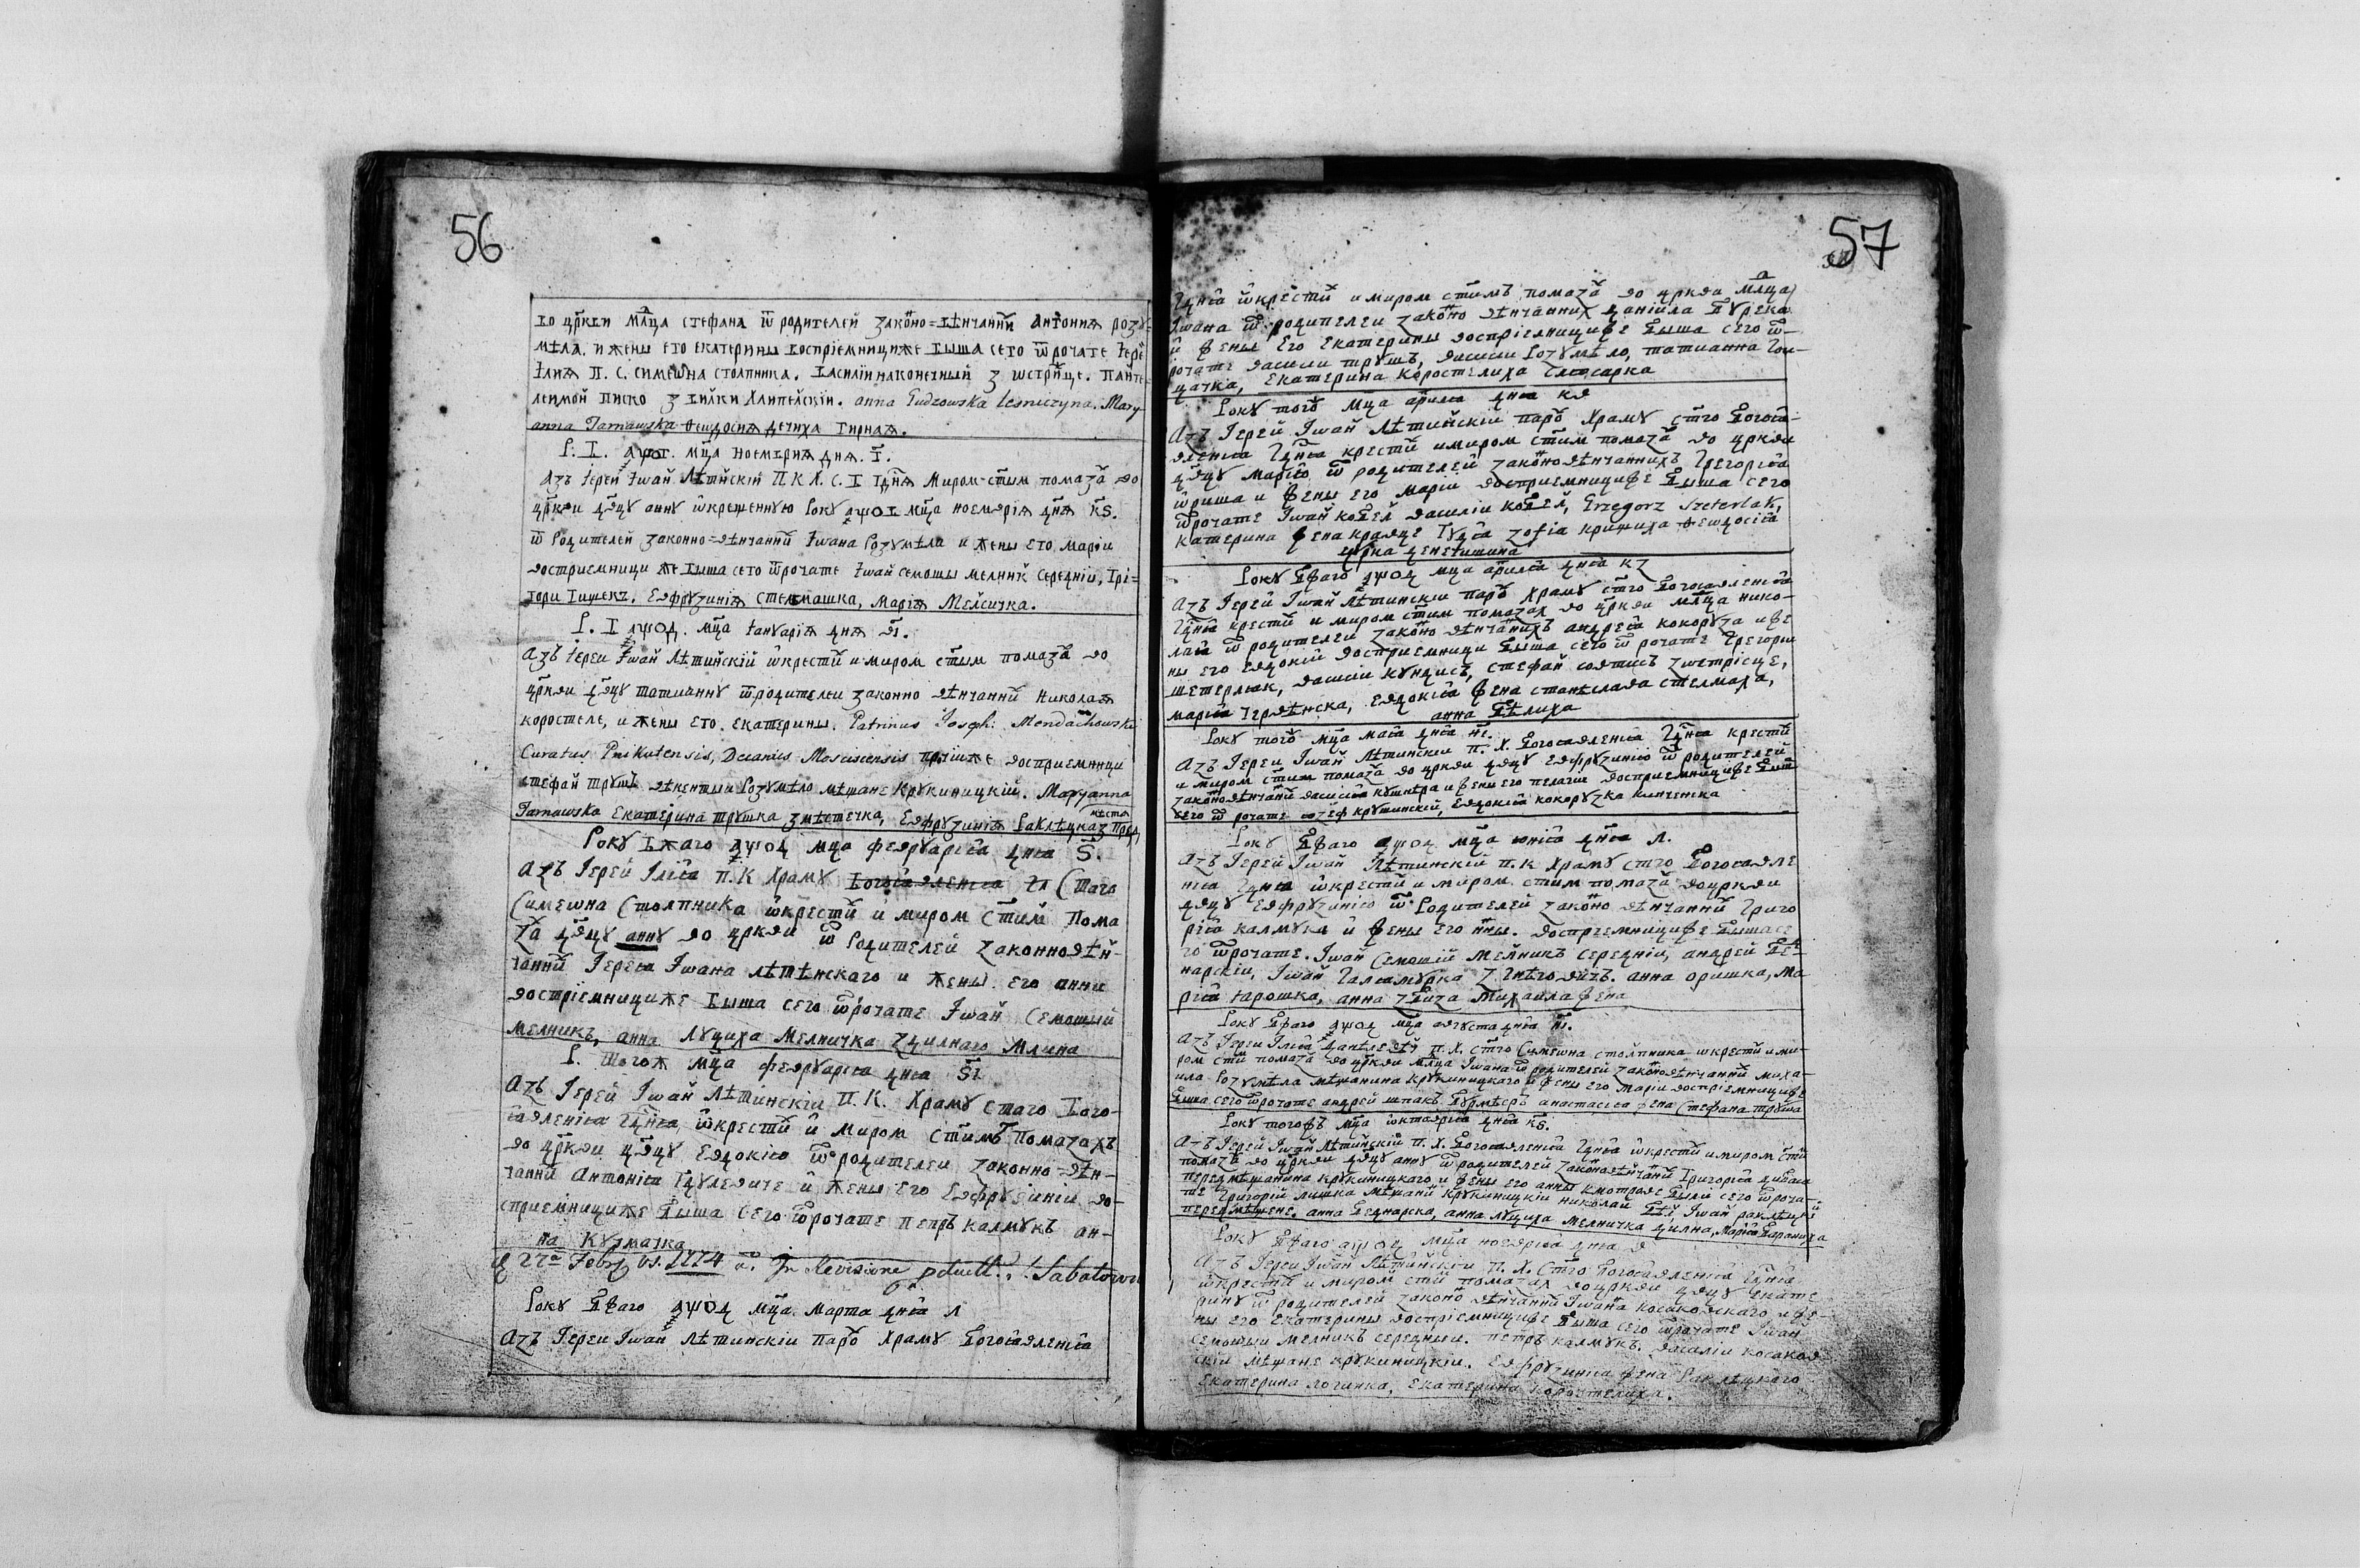 56
во цр҃кви мл҃ца стефана ѿ родителей законно=вѣнчанни антониѧ розꙋ=
мѣла. и жены его екатерины воспріемницыже быша сего ѿрочате іере
іѧ П. С. симеѡна столпника. василіи наконечный з ѡстрѡце. Панте=
леимой писко з вилки хлипелскіи. anna Gudzowska lesniczyna. Mary=
anna Tarnawska Ѳеѡдосиѧ дечиха гирнаѧ.
Р. Б. ҂аѱог. мц҃а ноемвриѧ днѧ. і.
Азъ іерей іѡан Лѣтинскій П К Х. С. Б гдн҃ѧ Миром ст҃ым помаза во
цр҃кви дв҃цꙋ аннꙋ ѡкрещеннꙋю рокꙋ ҂аѱов мц҃а ноемвріѧ днѧ кѕ.
ѿ родителей законно=вѣнчанни іѡана розꙋмѣла и жены его маріи
воспрiемници же быша сего ѿрочате іѡан семошы мелник середніи, Грі=
гори гищекъ. Евфрꙋзиніѧ стелмашка, маріѧ Мелничка.
Р. Б ҂аѱод. мц҃а іанꙋаріѧ днѧ ві.
Азъ іереи іѡан Лѣтинскій ѡкрести и миром ст҃ым помаза во
цр҃кви дв҃цꙋ татианнꙋ ѿродителеи законно вѣнчанни николаѧ
коростеле, и жены его. екатерины. Patrinus Joseph: Mendachowski
Curatus Pnikutensis, Decanus Mosciscensis прчіиже восприемници
стефан трꙋшъ вѣкентыи Розꙋмѣло мѣщане Крꙋкиницкіи. Maryanna
Tarnawska Екатерина трꙋшка змѣстечка, Евфрꙋзиніѧ Раклѣцка з пред мѣстѧ
Рокꙋ Бжаго ҂аѱод мц҃а феврꙋаріѧ днѧ ѕ.
Азъ Іерей Іліѧ П. К Храмꙋ Богоѧвленіѧ Ст҃аго
Симеѡна Столпника ѡкрести и миром Ст҃им пома
за дв҃цꙋ аннꙋ во цр҃кви ѿ Родителей законновѣн=
чанни Іереѧ Іѡана Лѣтѣнскаго и жены его анни
воспріемницыже быша сего ѿрочате Іѡан Семошый
Мелникъ, анна Лꙋциха Мелничка зцилнаго млина
Р. тогож мц҃а феврꙋаріѧ днѧ ѕі
Азъ Іерей Іѡан Лѣтинскіи П. К. Храмꙋ ст҃аго Бого=
ѧвленіѧ гдн҃ѧ, ѡкрести и миром ст҃имъ помазахъ
во цр҃кви дв҃цꙋ Евдокію ѿ родителеи законно=вѣн=
чанни антоніѧ Гдꙋлевиче и жены его Евфрꙋзинии во=
сприемницыже быша сего ѿрочате петръ калмꙋкъ ан=
на Кꙋзмачка
27 Febrj 1774 a. In Revisione
Рокꙋ Бжаго ҂аѱод мц҃а. марта днѧ л
Азъ Іереи Іѡан Лѣтинскіи паро Храмꙋ Богоѧвленіѧ
57
Гдн҃ѧ ѡкрести и миром ст҃имъ помаза во цркви мл҃ца
Іѡана ѿ родителеи законо вѣнчанних данійла Бꙋрека
и жены его екатерины воспріемницыже быша сего ѿ=
рочате васили трꙋшъ, василіи розꙋмѣло, татианна Гон=
чачка, екатерина коростелиха слюсарка
Рокꙋ того мц҃а априлѧ днѧ кв
Азъ Іерей Іѡан Лѣтинскіи паро Храмꙋ ст҃го Богоѧ=
вленіѧ гдн҃ѧ крести имиром ст҃им помаза во цркви
дв҃цꙋ марію ѿ родителей законовѣнчаннихъ Григоріѧ
ѡриша и жены его маріи восприемницыже быша сего
ѿрочате Іѡан кобел василіи кобел, Grzegorz Szeterlak,
катерина жена кравце Zofia крищиха Ѳеѡдосіѧ
Рокꙋ Бжаго ҂аѱод мц҃а априлѧ днѧ кз
Азъ Іерей Іѡан Лѣтинскіи паро Храмꙋ ст҃го Богоѧвленіѧ
Гдн҃ѧ крести и миром ст҃им помазах во цр҃кви мл҃ца нико=
лаѧ ѿ родителеи законо вѣнчанихъ андреѧ кокорꙋза и же
ны его евдокіи восприемници быша сего ѿрочате Григорьи
шетерлюк, василіи кꙋндисъ, стефан
маріѧ евдокіѧ жена станѣслава стелмаха,
анна Бѣлиха
Рокꙋ того мц҃а маіа днѧ иі.
Азъ Іереи Іѡан Лѣтинскіи П. Х. Богоѧвленіѧ Гдн҃ѧ крести
и миром ст҃им помаза во цркви дв҃цꙋ Евфрꙋзинію ѿ родителей
законовѣнчани василіѧ кꙋшнѣра и жены его пелагіи восприемницыже быша
сего ѿрочате іозеф крꙋтинскіи, евдокіѧ кокорꙋзка
Рокꙋ Бжаго аѱод мц҃а юніѧ днѧ л.
Азъ Іерей Іѡан Лѣтинскіи П. К Храмꙋ ст҃го Богоѧвле
ніѧ Гдн҃ѧ ѡкрести и миром ст҃им помаза воцркви
дв҃цꙋ Евфрꙋзинію ѿ Родителей законо вѣнчанни Григо
ріѧ калмꙋка и жены его анны. воспріемницыже бышасе
го ѿрочате. Іѡан Семоший Мелникъ середніи, андрей бе
нарскіи, Іѡан Галамꙋрка анна оришка, ма
ріѧ ꙗрошка, анна Михаила жена
Рокꙋ Бжаго ҂аѱод мц҃а авгꙋста днѧ иі.
Азъ Іереи Іліѧ П. Х. ст҃го Симеѡна столпника ѡкрести и ми=
ром ст҃и помаза во цр҃кви мл҃ца Іѡана ѿ родителей законовѣнчанни миха=
ила розꙋмѣла мѣщанина крꙋкиницкаго и жены его маріи воспріемницыже
быша сего ѿрочате андрей шпакъ бꙋрмѣсръ анастасіѧ жена Стефана трꙋша
Рокꙋ тогожъ мц҃а ѡктѡвріѧ днѧ кѕ.
Азъ Іерей Іѡан Лѣтинскіи П. Х. Богоѧвленіѧ Гдн҃ѧ ѡкрести имиром ст҃и
помаза во цркви дв҃цꙋ аннꙋ ѿ родителей законовѣнчанни Григоріѧ
передмѣщанина крꙋкиницкаго и жены его анны кмотрове были сего ѿроча=
те Григорій лишка мѣщани крꙋкиницкіи николаи Іѡан раклѣцкій
передмѣщене. анна беднарска, анна лꙋциха мелничка цилна, маріѧ бараниха
Рокꙋ Бжаго аѱод мц҃а ноевріѧ днѧ в
Азъ Іереи Іѡан Лѣтинскіи П. Х. ст҃го Богоѧвленіѧ Гдн҃ѧ
ѡкрести и миром ст҃и помазах воцркви дв҃цꙋ екате
ринꙋ ѿ родителей законо вѣнчанни Іѡана косаковскаго и же=
ны его екатерины воспріемницыже быша сего ѿрочате Іѡан
Семошыи мелникъ середныи. петръ калмꙋкъ. василіи косаков
скіи мѣщане крꙋкиницкіи. евфрꙋзиніѧ жена Раклѣцкаго
екатерина логинка, екатерина коростелиха.